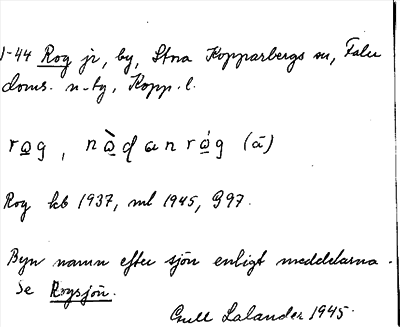 1-44 Rog jr, by, Stora Kopparbergs sn, Falu
doms. n-by, Kopp. l.
rog, nòdanróg (ā)
Rog kb 1937, ml 1945, G97.
Byn namn efter sjön enligt meddelarna.
Se Rogsjön.
Gull Lalander 1945.